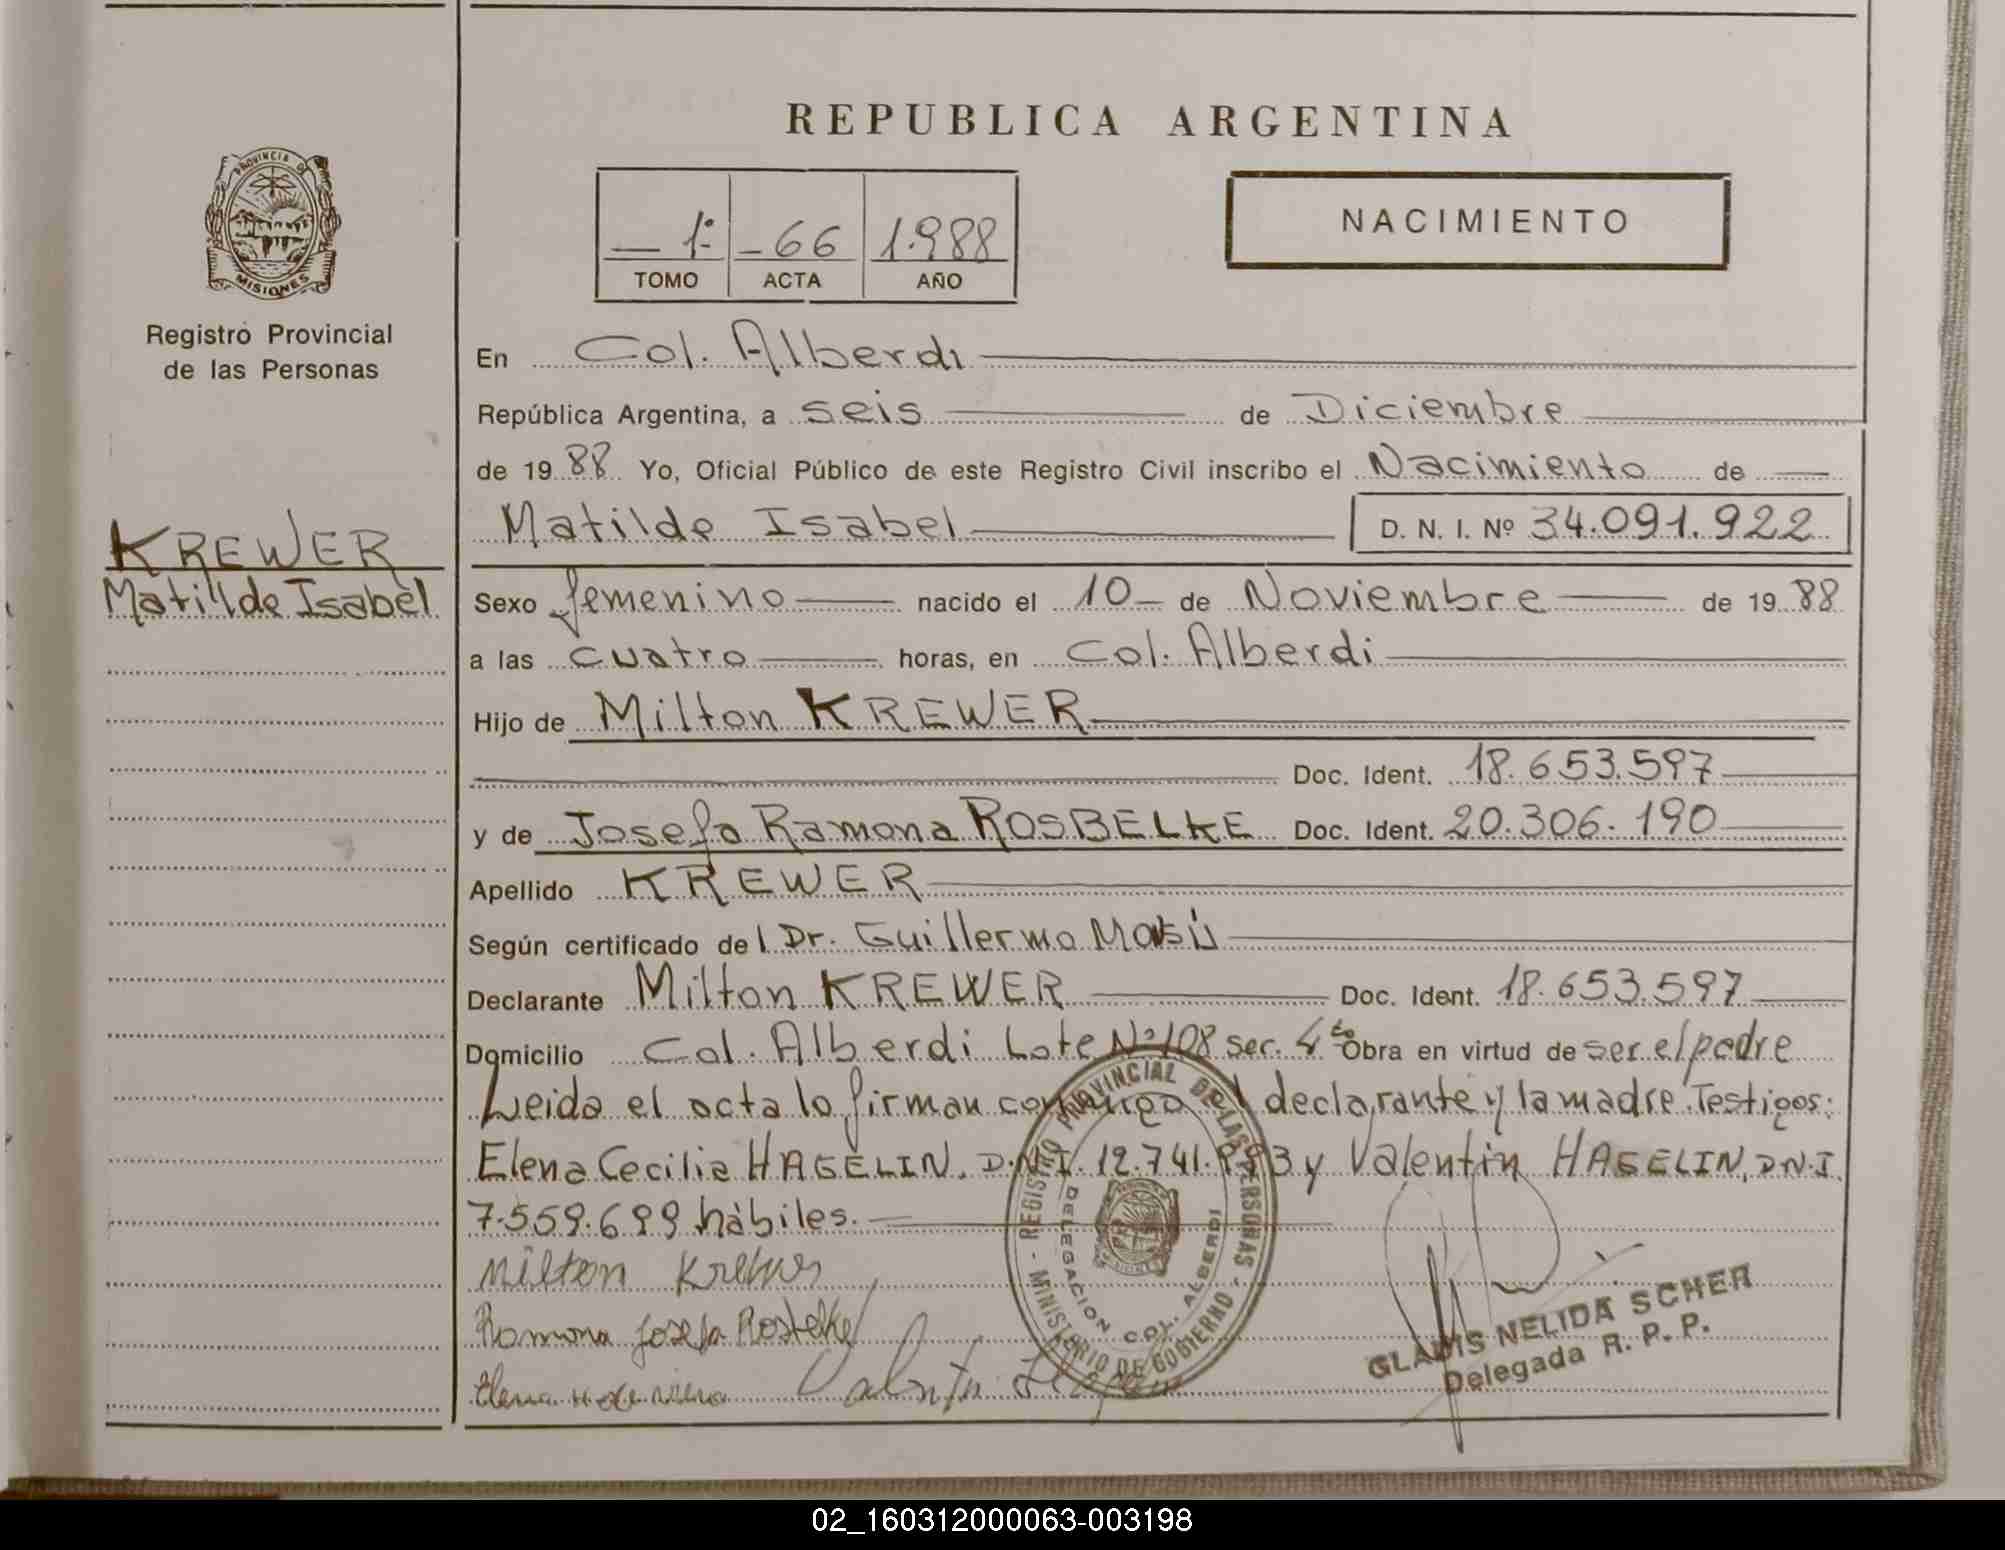 REPUBLICA ARGENTINA
PROVINCIA DE
MISIONES
Registro Provincial
de las Personas
KREWER
Matilde Isabel
1º
66
1.988
TOMO ACTA AÑO
NACIMIENTO
En Col. Alberdi
República Argentina, a seis de Diciembre
de 19 88 Yo, Oficial Público de este Registro Civil inscribo el Nacimiento de
Matilde Isabel D. N. I. Nº 34.091.922
Sexo femenino nacido el 10 de Noviembre de 19 88
a las cuatro horas, en Col. Alberdi
Hijo de Milton KREWER
Doc. Ident. 18.653.597
y de Josefa Ramona ROSBELKE Doc. Ident. 20.306.190
Apellido KREWER
Según certificado del Dr. Guillermo
Declarante Milton KREWER Doc. Ident. 18.653.597
Domicilio Col. Alberdi Lote Nº 108 sec. 4ta Obra en virtud de ser el padre
Leida el acta lo firman conmigo el declarante y la madre. Testigos:
Elena Cecilia HAGELIN, D.N.I. 12.741. y Valentin HAGELIN, D.N.I.
7.559.699 hábiles.
Milton Krewer
Ramona Josefa Rosbelke
Elena H de
Valentin
REGISTRO PROVINCIAL DE LAS PERSONAS - MINISTERIO DE GOBIERNO -
DELEGACION COL. ALBERDI
GLADIS NELIDA SCHER
Delegada R. P. P.
02_160312000063-003198